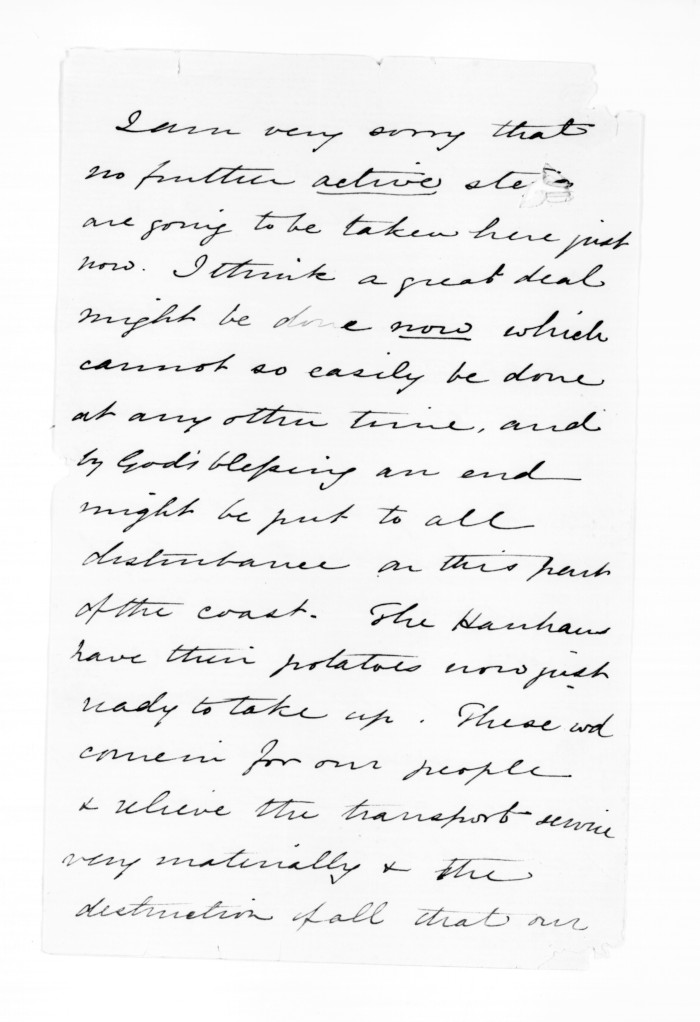 I am very sorry that
no further active steps
are going to be taken here just
now. I think a great deal
might be done now which
cannot so easily be done
at any other time, and
by God's blessing an end
might be put to all
disturbance on this part
of the coast. The Hauhaus
have their potatoes now just
ready to take up. These wd
come in for our people
& relieve the transport service
very materially & the
destruction of all that our